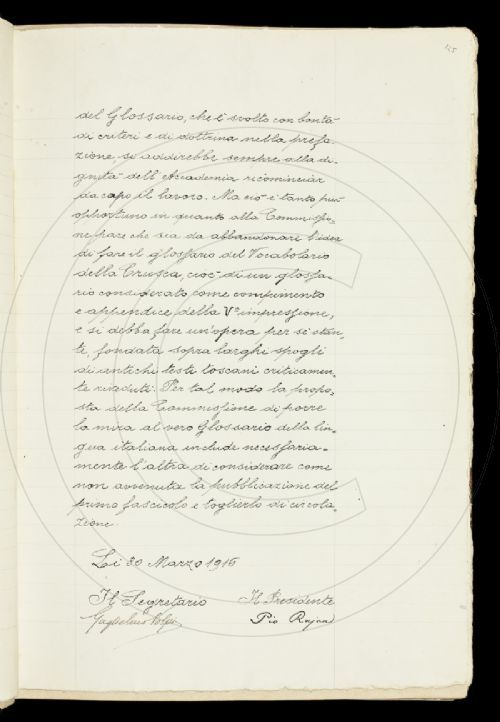 125
del Glossario, che è svolto con bontà
di criteri e di dottrina nella prefa-
zione, si addirebbe sempre alla di-
gnità dell'Accademia ricominciar
da capo il lavoro. Ma ciò è tanto più
opportuno in quanto alla Commissio-
ne pare che sia da abbandonare l'idea
di fare il glossario del Vocabolario
della Crusca, cioè di un glossa-
rio considerato come compimento
e appendice della Vª impressione,
e si debba fare un'opera per sé stan-
te, fondata sopra larghi spogli
di antichi testi toscani criticamen-
te riveduti. Per tal modo la propo-
sta della Commissione di porre
la mira al vero Glossario della lin-
gua italiana include necessaria-
mente l'altra di considerare come
non avvenuta la pubblicazione del
primo fascicolo e toglierlo di circola-
zione.
Li 30 Marzo 1915
Il Segretario Il Presidente
Guglielmo Volpi Pio Rajna